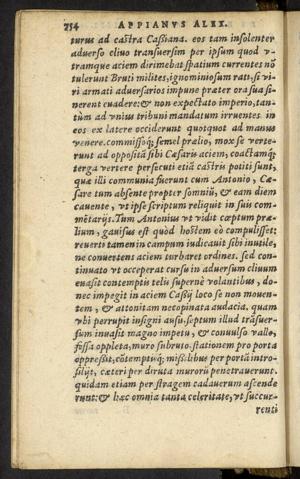 754 APPIANVS ALEX.
turus ad castra Cassiana. eos tam insolenter
aduerso cliuo transuersim per ipsum quod v-
tramque aciem dirimebat spatium currentes nō
tulerunt Bruti milites, ignominiosum rati, si vi-
ri armati aduersarios impune præter ora sua si-
nerent euadere: & non expectato imperio, tan-
tùm ad vnius tribuni mandatum irruentes in
eos ex latere occiderunt quotquot ad manus
venere. commissoq́; semel prælio, mox se verte-
runt ad oppositā sibi Cæsaris aciem, coactamq́;
terga vertere persecuti etiā castris potiti sunt,
quæ illi communia fuerunt cum Antonio, Cæ-
sare tum absente propter somniū, & eam diem
cauente, vt ipse scriptum reliquit in suis com-
mētarijs. Tum Antonius vt vidit cœptum præ-
lium, gauisus est quòd hostem eò compulisset:
reuerti tamen in campum iudicauit sibi inutile,
ne conuertens aciem turbaret ordines. sed con-
tinuato vt occeperat cursu in aduersum cliuum
euasit contemptis telis supernè volantibus, do-
nec impegit in aciem Cassij loco se non mouen-
tem, & attonitam necopinata audacia. quam
vbi perrupit insigni ausu, septum illud trāsuer-
sum inuasit magno impetu, & conuulso vallo,
fossa oppleta, muro subruto, stationem pro porta
oppressit, cōtemptisq́; missilibus per portā intro-
silijt, cæteri per diruta murorū penetrauerunt.
quidam etiam per stragem cadauerum ascende
runt: & hæc omnia tanta celeritate, vt succur-
renti